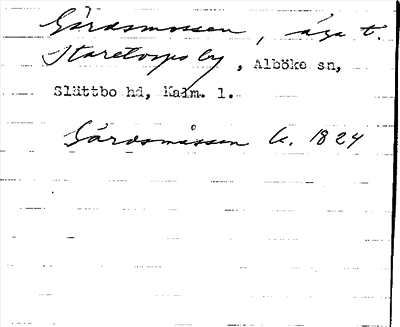 Gärdsmossen, äga t.
Staretorps by, Alböke sn,
Slättbo hd, Kalm. l.
Gärdsmåssen k. 1824